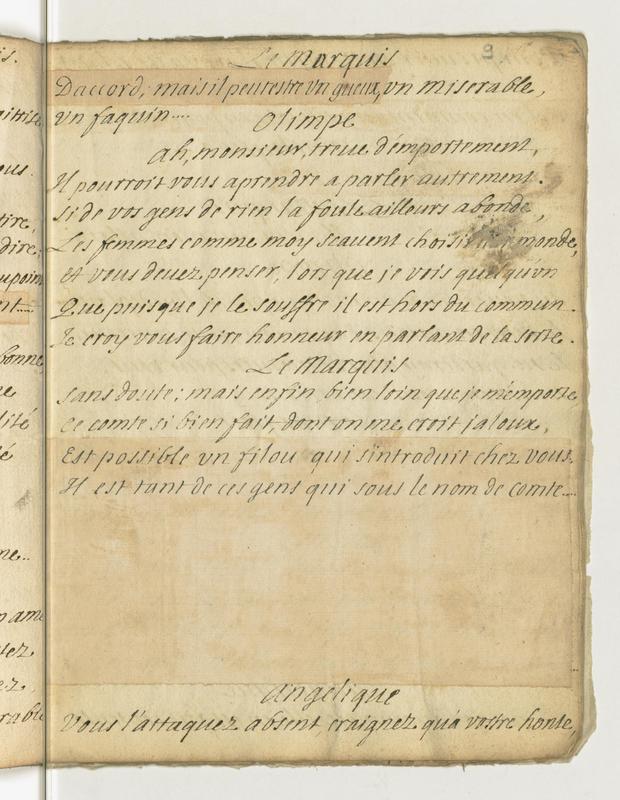 9
Le Marquis
D'accord; mais il peut estre un gueux, vn miserable,
vn faquin....
Olimpe
ah, monsieur, treue d'emportement,
Il pourroit vous aprendre a parler autrement.
Si de vos gens de rien la foule ailleurs abonde,
Les femmes comme moy scauent choisir monde,
et vous deuez penser, lors que je vois quelqu'vn
Que puisque je le souffre il est hors du commun.
Ie croy vous faire honneur en parlant de la sorte.
Le Marquis
sans doute; mais enfin bien loin que je m'emporte,
ce comte si bien fait, dont on me croit jaloux,
Est possible vn filou qui s'introduit chez vous.
Il est tant de ces gens qui sous le nom de comte....
angelique
Vous l'attaquez absent, craignez qu'a vostre honte,